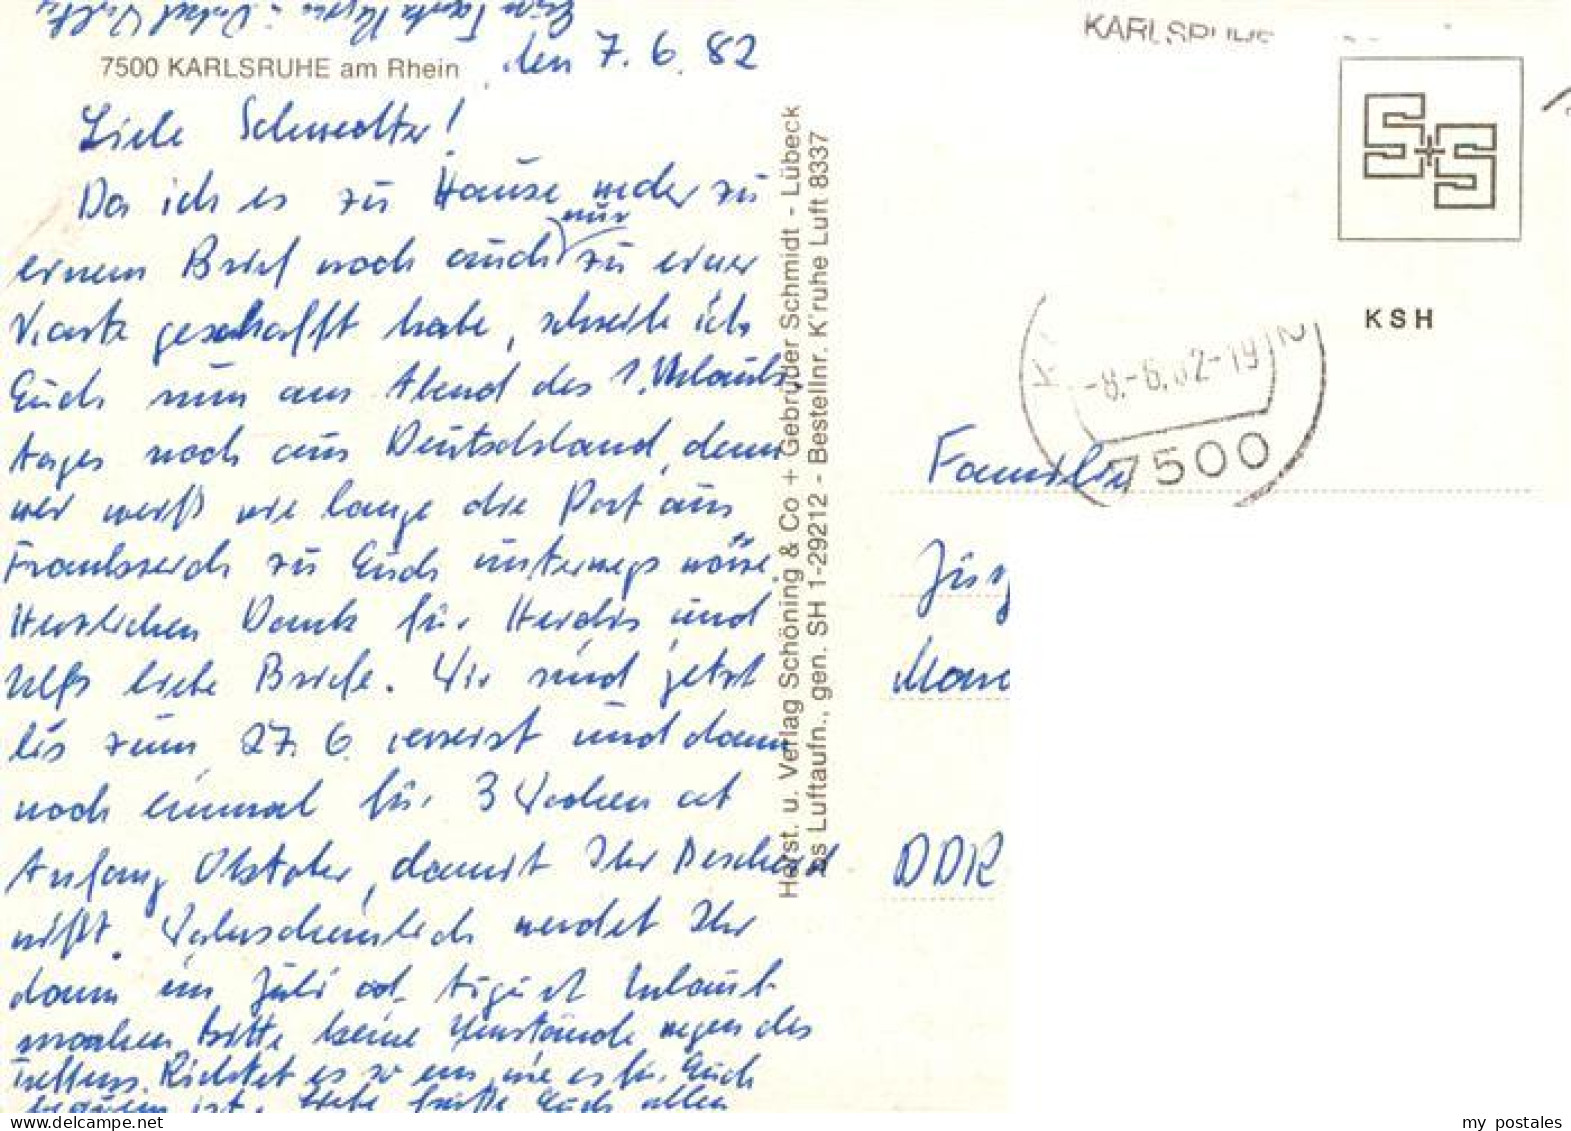 7500 KARLSRUHE am Rhein
den 7. 6. 82
Liebe Schwedter!
Da ich es zu Hause weder zu
einem Brief noch auch nur zu einer
Karte geschafft habe, schreibe ich
Euch nun am Abend des 1. Urlaubs-
tages noch aus Deutschland, denn
wer weiß wie lange die Post aus
Frankreich zu Euch unterwegs wäre.
Herzlichen Dank für Heidis und
Ulfs liebe Briefe. Wir sind jetzt
bis zum 27. 6. verreist und dann
noch einmal für 3 Wochen ab
Anfang Oktober, damit Ihr Bescheid
wißt. Wahrscheinlich werdet Ihr
dann im Juli od. August Urlaub
machen. Bitte keine Umstände wegen des
Treffens. Richtet es so ein, wie es für Euch
ist. Liebe Grüße Euch allen
Herst. u. Verlag Schöning & Co + Gebrüder Schmidt - Lübeck
Luftaufn., gen. SH 1-29212 - Bestellnr. K'ruhe Luft 8337
KARLSRUHE
KSH
-8.-6.82-19
7500
Familie
DDR
my postales